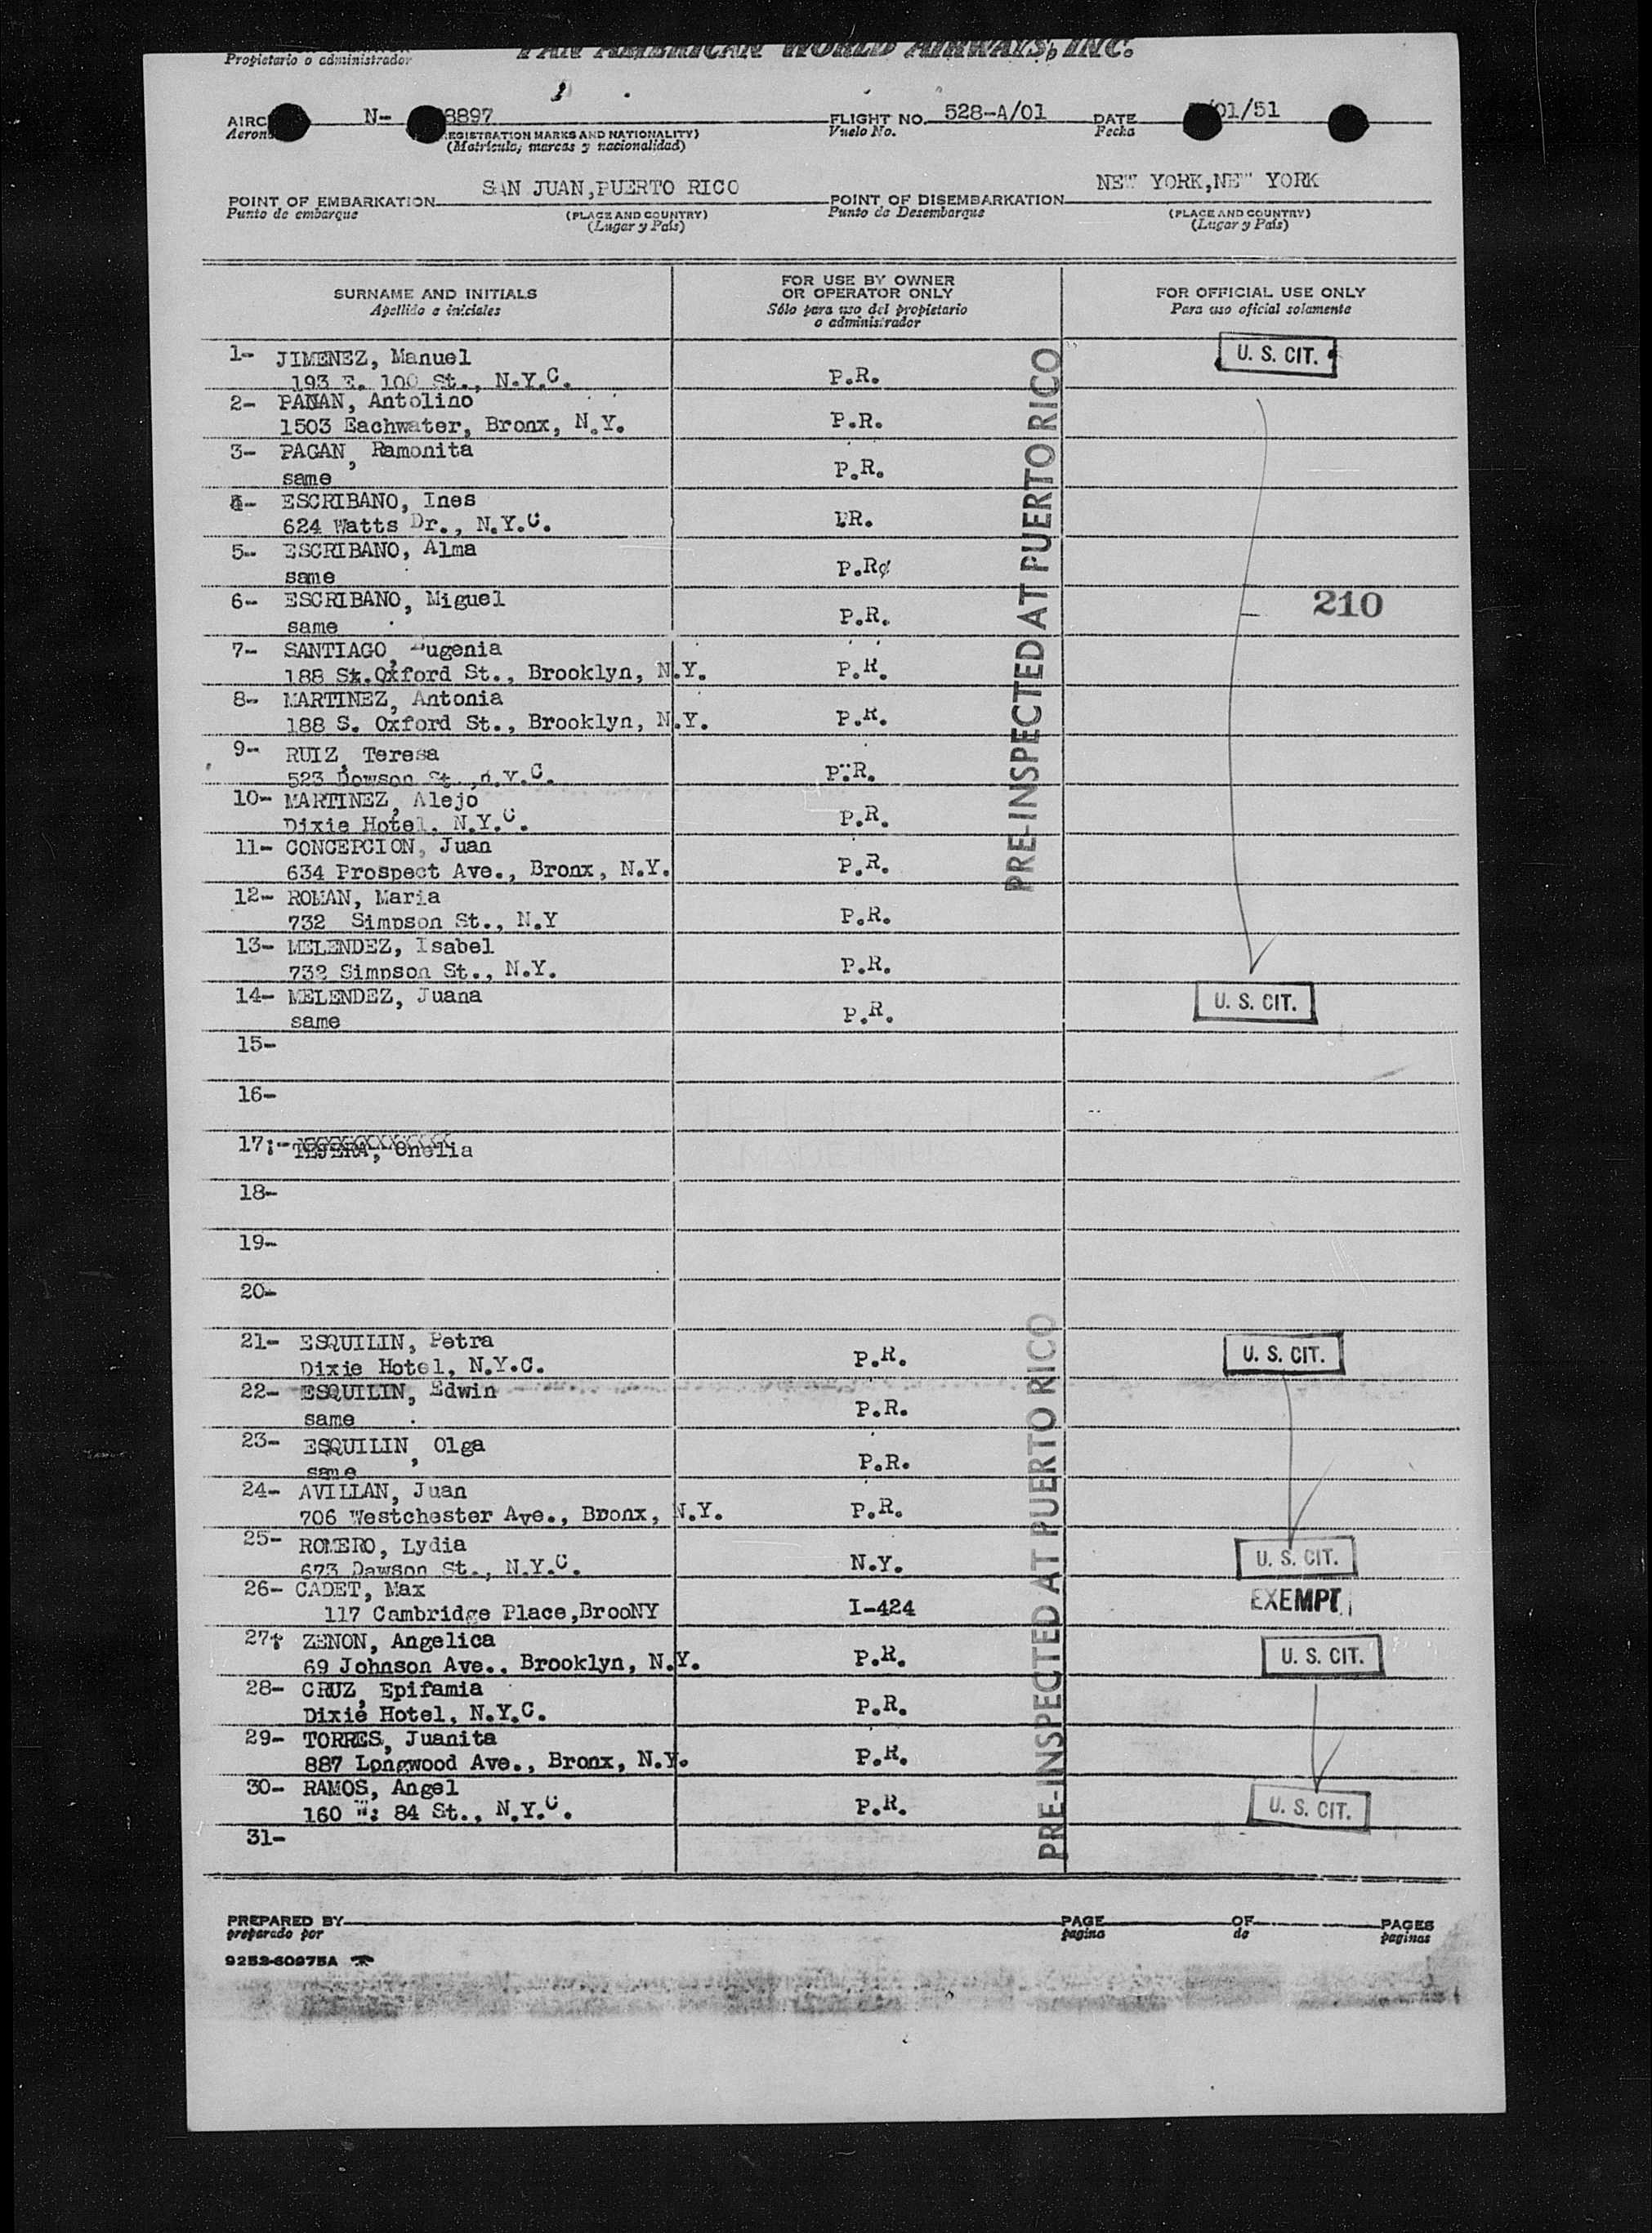 PAN AMERICAN WORLD AIRWAYS, INC.
Propietario o administrador
N- 8897
FLIGHT NO. 528-A/01
DATE /01/51
Vuelo No.
Fecha
(Matrícula, marcas y nacionalidad)
SAN JUAN,PUERTO RICO
NEW YORK,NEW YORK
POINT OF EMBARKATION
POINT OF DISEMBARKATION
Punto de embarque
(PLACE AND COUNTRY)
Punto de Desembarque
(PLACE AND COUNTRY)
(Lugar y País)
(Lugar y País)
SURNAME AND INITIALS
Apellido e iniciales
FOR USE BY OWNER
OR OPERATOR ONLY
Sólo para uso del propietario
o administrador
FOR OFFICIAL USE ONLY
Para uso oficial solamente
1- JIMENEZ, Manuel
U. S. CIT.
193 E. 100 St., N.Y.C. P.R.
2- PANAN, Antolino
1503 Eachwater, Bronx, N.Y. P.R.
3- PAGAN, Ramonita
same P.R.
4- ESCRIBANO, Ines
624 Watts Dr., N.Y.C. P.R.
5- ESCRIBANO, Alma
same P.R.
6- ESCRIBANO, Miguel
210
same P.R.
7- SANTIAGO, Eugenia
188 St.Oxford St., Brooklyn, N.Y. P.R.
8- MARTINEZ, Antonia
188 S. Oxford St., Brooklyn, N.Y. P.R.
9- RUIZ, Teresa
523 Dowson St., N.Y.C. P.R.
10- MARTINEZ, Alejo
Dixie Hotel, N.Y.C. P.R.
11- CONCEPCION, Juan
634 Prospect Ave., Bronx, N.Y. P.R.
12- ROMAN, Maria
732 Simpson St., N.Y P.R.
13- MELENDEZ, Isabel
732 Simpson St., N.Y. P.R.
14- MELENDEZ, Juana
U. S. CIT.
same P.R.
PRE-INSPECTED AT PUERTO RICO
15-
16-
17:- TEJERA, Onelia
18-
19-
20-
21- ESQUILIN, Petra
U. S. CIT.
Dixie Hotel, N.Y.C. P.R.
22- ESQUILIN, Edwin
same P.R.
23- ESQUILIN, Olga
same P.R.
24- AVILLAN, Juan
706 Westchester Ave., Bronx, N.Y. P.R.
25- ROMERO, Lydia
U. S. CIT.
673 Dawson St., N.Y.C. N.Y.
26- CADET, Max
EXEMPT
117 Cambridge Place,BrooNY I-424
27- ZENON, Angelica
U. S. CIT.
69 Johnson Ave., Brooklyn, N.Y. P.R.
28- CRUZ, Epifamia
Dixie Hotel, N.Y.C. P.R.
29- TORRES, Juanita
887 Longwood Ave., Bronx, N.Y. P.R.
30- RAMOS, Angel
U. S. CIT.
160 W: 84 St., N.Y.C. P.R.
PRE-INSPECTED AT PUERTO RICO
31-
PREPARED BY
PAGE OF PAGES
preparado por
pagina de paginas
9253-60975A